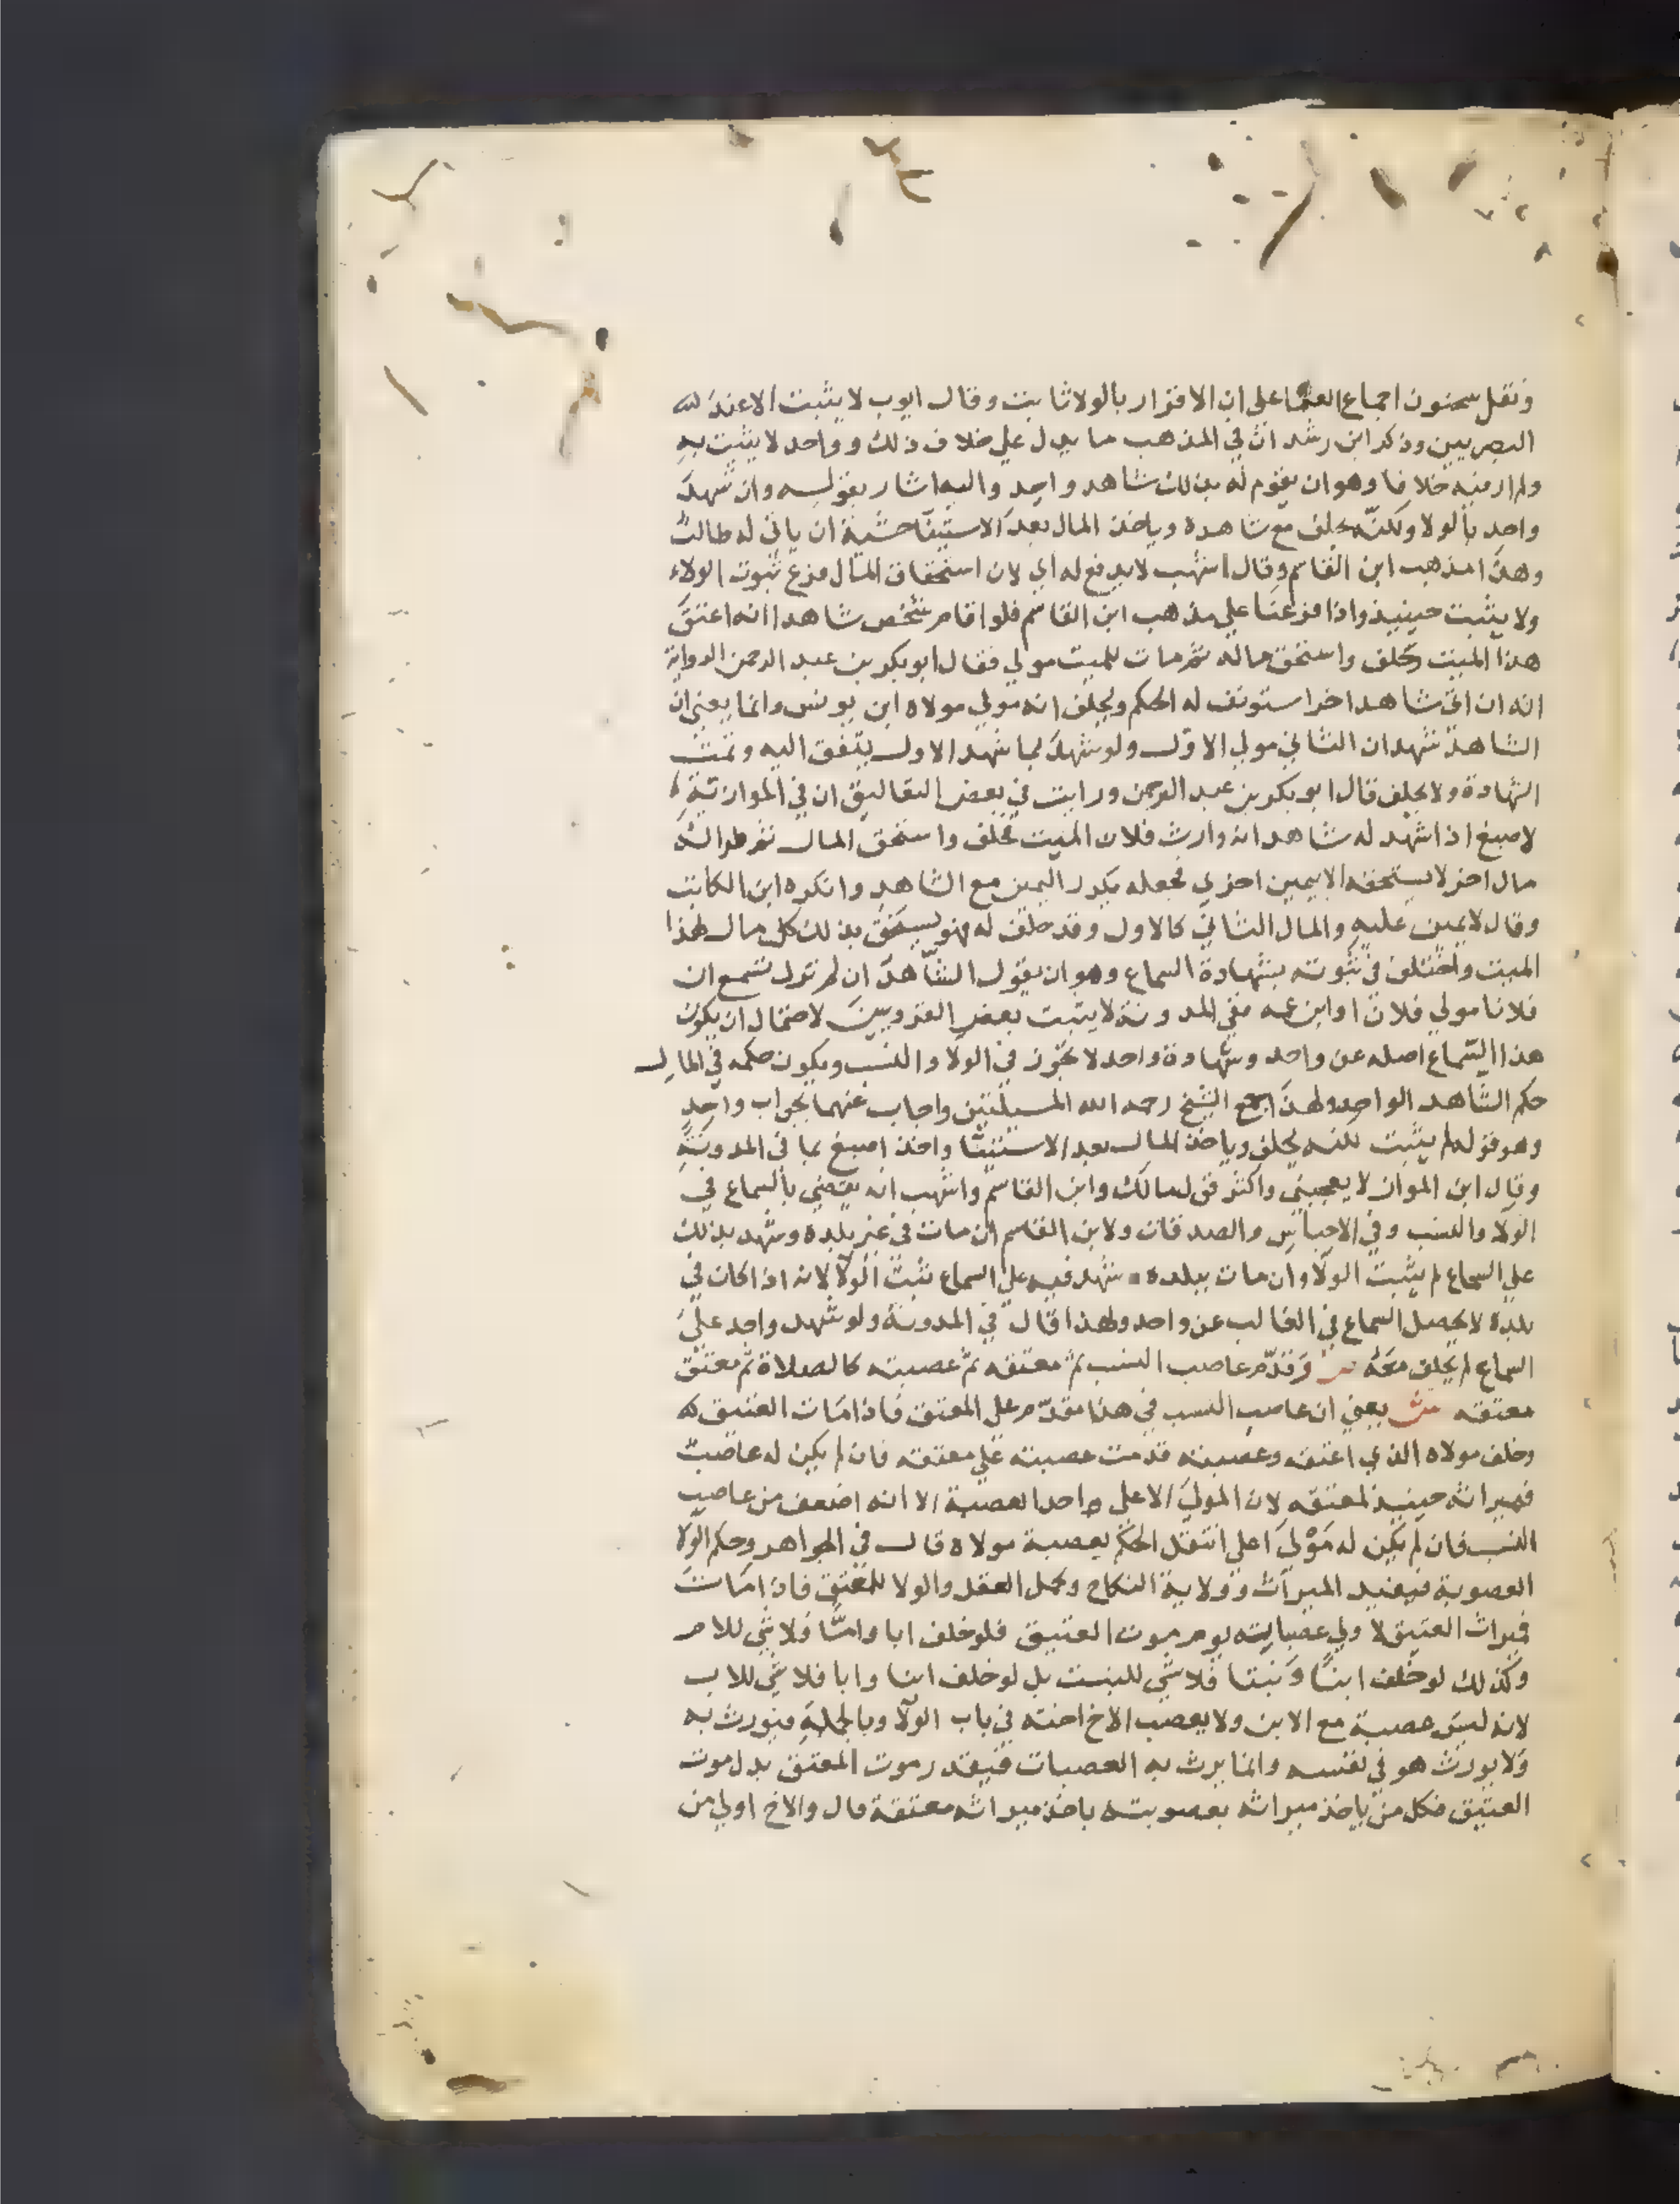 ونقل سحنون اجماع العلما على ان الاقرار بالولا ثابت وقال ايوب لا يثبت الا عند
البصريين وذكر ابن رشد ان في المذهب ما يدل على خلاف ذلك وواحد لا يثبت به
ولم ار فيه خلافا وهو ان يقوم له بذلك شاهد واحد واليه اشار بقوله وان شهد
واحد بالولا ولكنه يحلف مع شاهده وياخذ المال بعد الاستينا خشية ان ياتي له طالب
وهذا مذهب ابن القاسم وقال اشهب لا يدفع له اي لان استحقاق المال فرع ثبوت الولاء
ولا يثبت حينيذ واذا فرعنا علي مذهب ابن القاسم فلو اقام شخص شاهدا انه اعتق
هذا الميت وحلف واستحق ماله ثم مات للميت مولي فقال ابو بكر بن عبد الرحمن الرواية
انه ان اتى شاهدا اخر استونف له الحكم ويحلف انه مولي مولاه ابن يونس وانما يعني ان
الشاهد شهد ان الثاني مولي الاول ولو شهد بما شهد الاول يتفق اليه وتمت
الشهادة ولا يحلف قال ابو بكر بن عبد الرحمن ورايت في بعض التعاليق ان في الموازية
لاصبغ اذا شهد له شاهد انه وارث فلان الميت يحلف واستحق المال ثم طرا له
مال اخر لا يستحقه الا بيمين اخري فجعله يكرر اليمين مع الشاهد وانكره ابن الكاتب
وقال لا يمين عليه والمال الثاني كالاول وقد حلف له فهو يستحق بذلك كل مال لهذا
الميت واختلف في ثبوته بشهادة السماع وهو ان يقول الشاهد ان لم نزل نسمع ان
فلانا مولي فلان او ابن عمه ففي المدونة لا يثبت بعض القرويين لاحتمال ان يكون
هذا السماع اصله عن واحد وشهادة واحد لا تجوز في الولا والنسب ويكون حكمه في المال
حكم الشاهد الواحد ولهذا جمع الشيخ رحمه الله المسيلتين واجاب عنهما بجواب واحد
وهو قوله لم يثبت لكنه يحلف وياخذ المال بعد الاستينا واخذ اصبغ بما في المدونة
وقال ابن المواز لا يعجبني واكثر قول مالك وابن القاسم واشهب انه يقضي بالسماع في
الولاء والنسب وفي الاحباس والصدقات ولابن القاسم ان مات في غير بلده وشهد بذلك
علي السماع لم يثبت الولا وان مات ببلده شهد فيه علي السماع تثبت الولا لانه اذا كان في
بلده لا يحصل السماع في الغالب عن واحد ولهذا قال في المدونة ولو شهد واحد علي
السماع لم يحلف معه ص وقدم عاصب النسب ثم معتقه ثم عصبته كالصلاة ثم معتق
معتقه ش يعني ان عاصب النسب في هذا مقدم علي المعتق فاذا مات العتيق
وخلف مولاه الذي اعتقه وعصبته قدمت عصبته علي معتقه فان لم يكن له عاصب
فميراثه حينيذ لمعتقه لان المولي الاعلي واحد العصبة الا انه اضعف من عاصب
النسب فان لم يكن له مولي اعلي انتقل الحكم لعصبة مولاه قال في الجواهر وحكم الولا
العصوبة فيفيد الميراث وولاية النكاح وحمل العقل والولا للمعتق فاذا مات
فميراث العتيق لاولي عصباته يوم موت العتيق فلو خلف ابا واما فلا شي للام
وكذلك لو خلف ابنا وبنتا فلا شي للبنت بل لو خلف ابنا وابا فلا شي للاب
لانه ليس عصبة مع الابن ولا يعصب الاخ اخته في باب الولا وبالجملة فيورث به
ولا يورث هو في نفسه وانما يرث به العصبات فيقدر موت المعتق بدل موت
العتيق فكل من ياخذ ميراثه بعصوبته ياخذ ميراثه معتقه قال والاخ اولي من